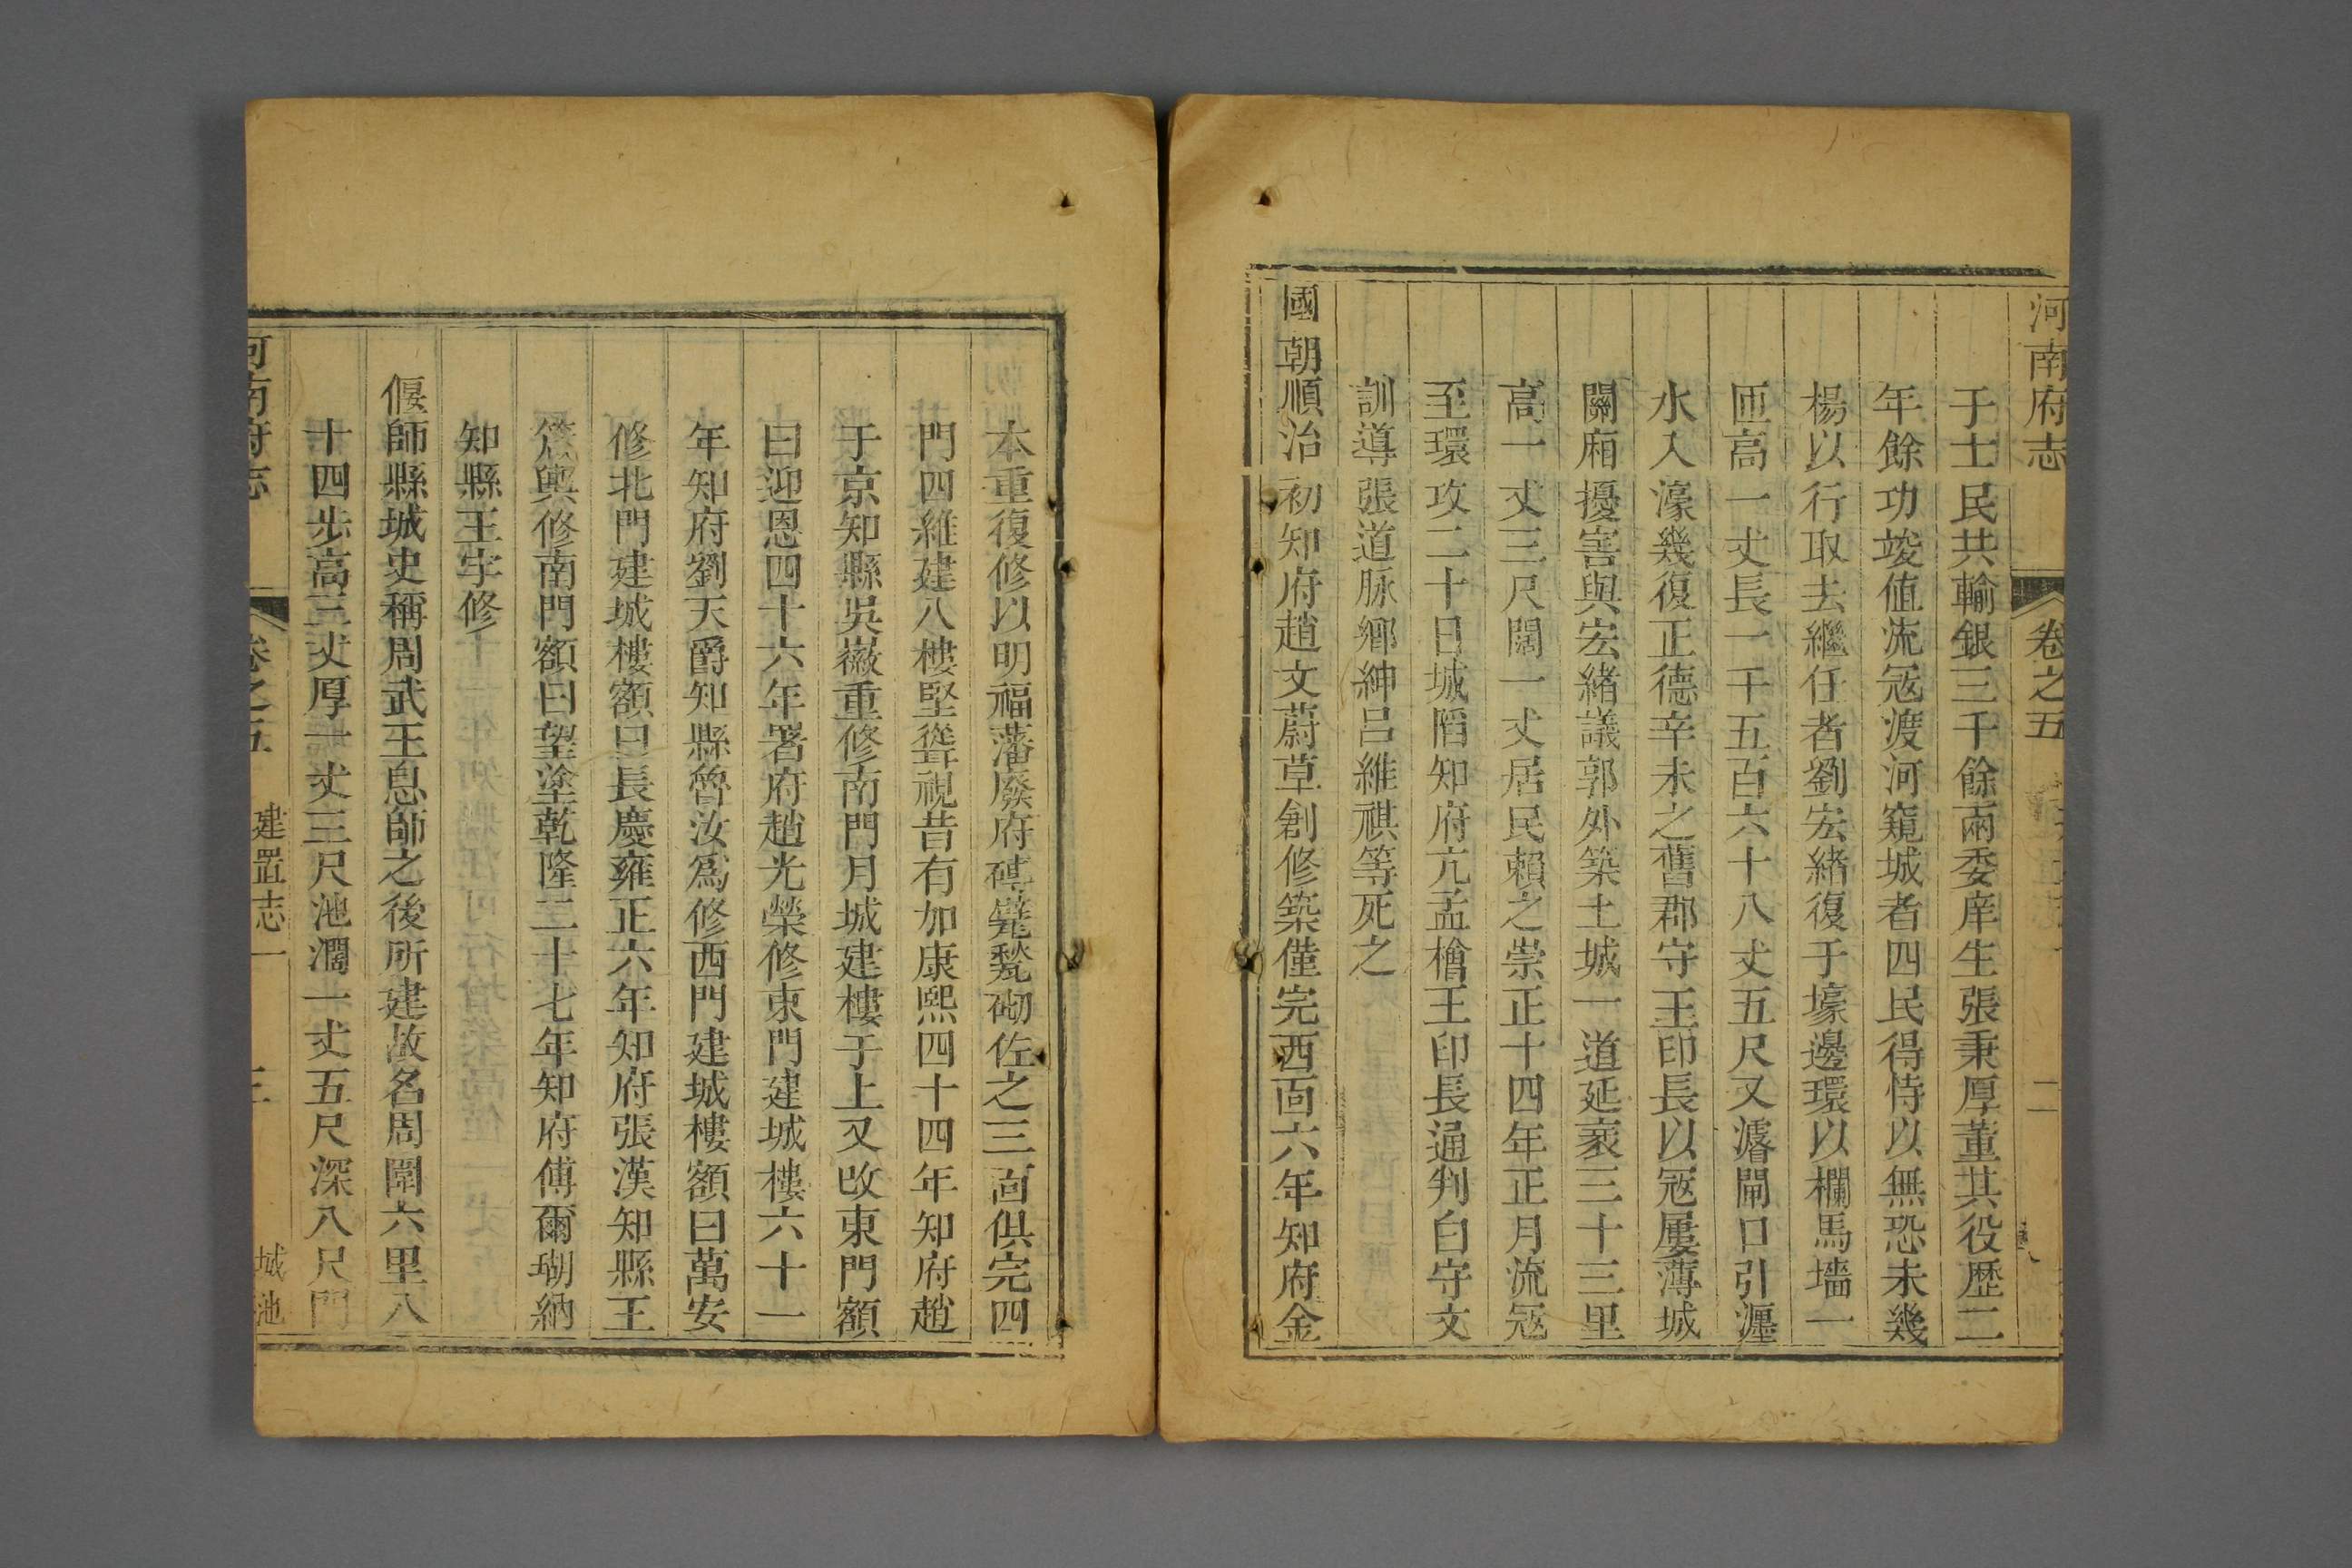 河南府志
卷之五
二
于士民共輸銀三千餘兩委庠生張秉厚董其役歷二
年餘功竣值流冦渡河窺城者四民得恃以無恐未幾
楊以行取去繼任者劉宏緒復于壕邊環以欄馬墻一
匝高一丈長一千五百六十八丈五尺又濬閘口引瀍
水入濠幾復正德辛未之舊郡守王印長以冦屢薄城
關廂擾害與宏緒議郭外築土城一道延袤三十三里
高一丈三尺闊一丈居民賴之崇正十四年正月流冦
至環攻二十日城䧟知府亢孟檜王印長通判白守文
訓導張道脉鄉紳呂維祺等死之
國朝順治初知府趙文蔚草創修築僅完西面六年知府金
本重復修以明福藩廢府磚甃砌佐之三面俱完四
門四維建八樓堅聳視昔有加康熙四十四年知府趙
于京知縣吳徽重修南門月城建樓于上又改東門額
曰迎恩四十六年署府趙光榮修東門建城樓六十一
年知府劉天爵知縣魯汝為修西門建城樓額曰萬安
修北門建城樓額曰長慶雍正六年知府張漢知縣王
箴輿修南門額曰望塗乾隆二十七年知府傅爾瑚納
知縣王字修
偃師縣城史稱周武王息師之後所建故名周圍六里八
十四步高三丈厚一丈三尺池濶一丈五尺深八尺門
河南府志
卷之五
建置志一
三
城池